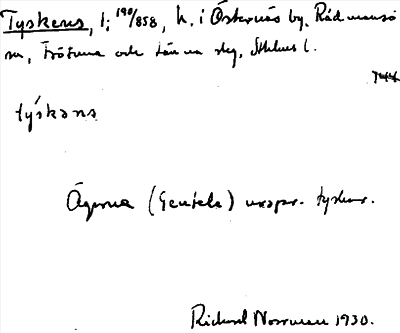 Tyskens, l; 190/858, h. i Östernäs by, Rådmansö
sn, Frötuna och Länna skg, Sthlms l.
týskəns
Ägarna (Gentela) urspr. tyskar.
Richard Norrman 1930.